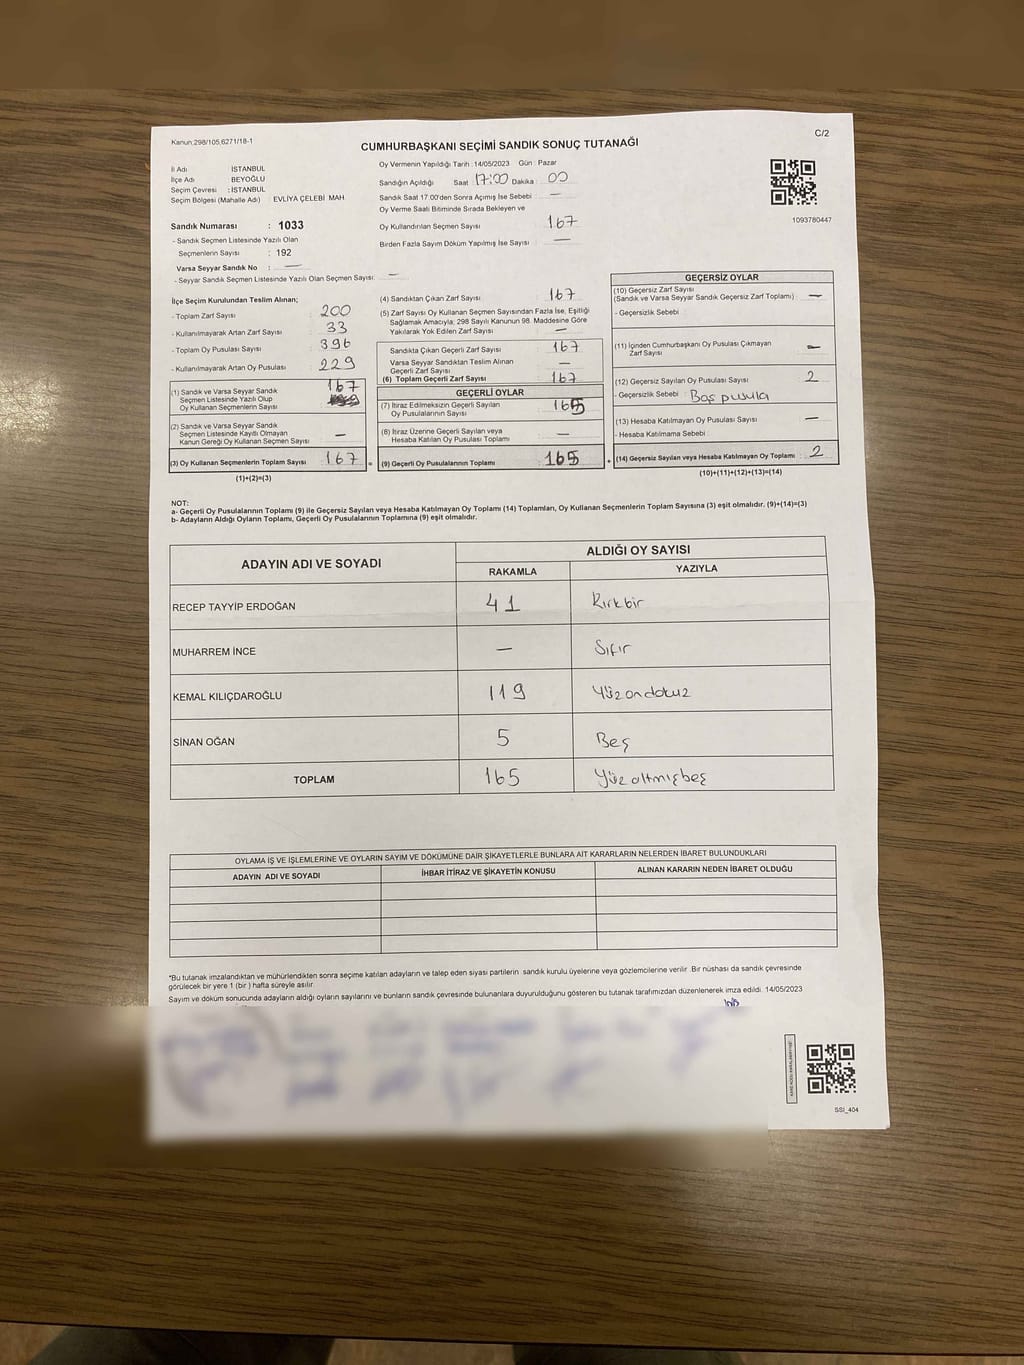 Kanun:298/105,6271/18-1
C/2
CUMHURBAŞKANI SEÇİMİ SANDIK SONUÇ TUTANAĞI
İl Adı : İSTANBUL
İlçe Adı : BEYOĞLU
Seçim Çevresi : İSTANBUL
Seçim Bölgesi (Mahalle Adı) : EVLİYA ÇELEBİ MAH.
Sandık Numarası : 1033
- Sandık Seçmen Listesinde Yazılı Olan
Seçmenlerin Sayısı : 192
Varsa Seyyar Sandık No : —
- Seyyar Sandık Seçmen Listesinde Yazılı Olan Seçmen Sayısı: —
Oy Vermenin Yapıldığı Tarih :14/05/2023 Gün : Pazar
Sandığın Açıldığı Saat 17:00 Dakika : 00
Sandık Saat 17.00'den Sonra Açımış İse Sebebi : —
Oy Verme Saati Bitiminde Sırada Bekleyen ve
Oy Kullandırılan Seçmen Sayısı : 167
Birden Fazla Sayım Döküm Yapılmış İse Sayısı : —
1093780447
İlçe Seçim Kurulundan Teslim Alınan;
- Toplam Zarf Sayısı : 200
- Kullanılmayarak Artan Zarf Sayısı : 33
- Toplam Oy Pusulası Sayısı : 396
- Kullanılmayarak Artan Oy Pusulası : 229
(1) Sandık ve Varsa Seyyar Sandık
Seçmen Listesinde Yazılı Olup
Oy Kullanan Seçmenlerin Sayısı : 167
(2) Sandık ve Varsa Seyyar Sandık
Seçmen Listesinde Kayıtlı Olmayan
Kanun Gereği Oy Kullanan Seçmen Sayısı : —
(3) Oy Kullanan Seçmenlerin Toplam Sayısı : 167
(1)+(2)=(3)
(4) Sandıktan Çıkan Zarf Sayısı : 167
(5) Zarf Sayısı Oy Kullanan Seçmen Sayısından Fazla İse, Eşitliği
Sağlamak Amacıyla; 298 Sayılı Kanunun 98. Maddesine Göre
Yakılarak Yok Edilen Zarf Sayısı : —
Sandıkta Çıkan Geçerli Zarf Sayısı : 167
Varsa Seyyar Sandıktan Teslim Alınan
Geçerli Zarf Sayısı : —
(6) Toplam Geçerli Zarf Sayısı : 167
GEÇERLİ OYLAR
(7) İtiraz Edilmeksizin Geçerli Sayılan
Oy Pusulalarının Sayısı : 165
(8) İtiraz Üzerine Geçerli Sayılan veya
Hesaba Katılan Oy Pusulası Toplamı : —
(9) Geçerli Oy Pusulalarının Toplamı : 165
GEÇERSİZ OYLAR
(10) Geçersiz Zarf Sayısı
(Sandık ve Varsa Seyyar Sandık Geçersiz Zarf Toplamı) : —
- Geçersizlik Sebebi :
(11) İçinden Cumhurbaşkanı Oy Pusulası Çıkmayan
Zarf Sayısı : —
(12) Geçersiz Sayılan Oy Pusulası Sayısı : 2
- Geçersizlik Sebebi : Boş pusula
(13) Hesaba Katılmayan Oy Pusulası Sayısı : —
- Hesaba Katılmama Sebebi :
(14) Geçersiz Sayılan veya Hesaba Katılmayan Oy Toplamı : 2
(10)+(11)+(12)+(13)=(14)
NOT:
a- Geçerli Oy Pusulalarının Toplamı (9) ile Geçersiz Sayılan veya Hesaba Katılmayan Oy Toplamı (14) Toplamları, Oy Kullanan Seçmenlerin Toplam Sayısına (3) eşit olmalıdır. (9)+(14)=(3)
b- Adayların Aldığı Oyların Toplamı, Geçerli Oy Pusulalarının Toplamına (9) eşit olmalıdır.
ADAYIN ADI VE SOYADI
ALDIĞI OY SAYISI
RAKAMLA YAZIYLA
RECEP TAYYİP ERDOĞAN 41 Kırkbir
MUHARREM İNCE — Sıfır
KEMAL KILIÇDAROĞLU 119 Yüzondokuz
SİNAN OĞAN 5 Beş
TOPLAM 165 Yüzaltmışbeş
OYLAMA İŞ VE İŞLEMLERİNE VE OYLARIN SAYIM VE DÖKÜMÜNE DAİR ŞİKAYETLERLE BUNLARA AİT KARARLARIN NELERDEN İBARET BULUNDUKLARI
ADAYIN ADI VE SOYADI İHBAR İTİRAZ VE ŞİKAYETİN KONUSU ALINAN KARARIN NEDEN İBARET OLDUĞU
*Bu tutanak imzalandıktan ve mühürlendikten sonra seçime katılan adayların ve talep eden siyasi partilerin sandık kurulu üyelerine veya gözlemcilerine verilir .Bir nüshası da sandık çevresinde
görülecek bir yere 1 (bir ) hafta süreyle asılır.
Sayım ve döküm sonucunda adayların aldığı oyların sayılarını ve bunların sandık çevresinde bulunanlara duyurulduğunu gösteren bu tutanak tarafımızdan düzenlenerek imza edildi. 14/05/2023
SSI_404